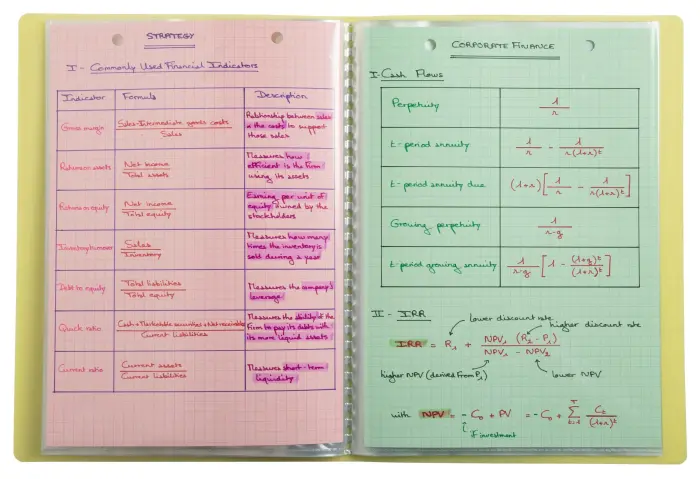 STRATEGY
I - Commonly Used Financial Indicators
Indicator Formula Description
Gross margin
Sales-Intermediate goods costs
Sales
Relationship between sales
& the costs to support
those sales
Return on assets
Net income
Total assets
Measures how
efficient is the firm
using its assets
Return on equity
Net income
Total equity
Earning per unit of
equity owned by the
stockholders
Inventory turnover
Sales
Inventory
Measures how many
times the inventory is
sold during a year
Debt to equity
Total liabilities
Total equity
Measures the company's
leverage
Quick ratio
Cash + Marketable securities + Net receivables
Current liabilities
Measures the ability of the
firm to pay its debts with
its more liquid assets
Current ratio
Current assets
Current liabilities
Measures short-term
liquidity
CORPORATE FINANCE
I- Cash Flows
Perpetuity
1/r
t-period annuity
1/r - 1/r(1+r)^t
t-period annuity due
(1+r) [1/r - 1/r(1+r)^t]
Growing perpetuity
1/r-g
t-period growing annuity
1/r-g [1 - (1+g)^t/(1+r)^t]
II - IRR
lower discount rate
higher discount rate
IRR = R1 + NPV1 (R2 - R1)/NPV1 - NPV2
higher NPV (derived from R1)
lower NPV
with NPV = - C0 + PV = - C0 + Σ t=1 T Ct/(1+r)^t
if investment